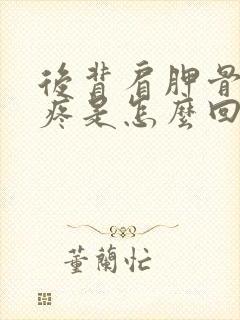 後背肩胛骨
疼是怎麼回
董蘭忙